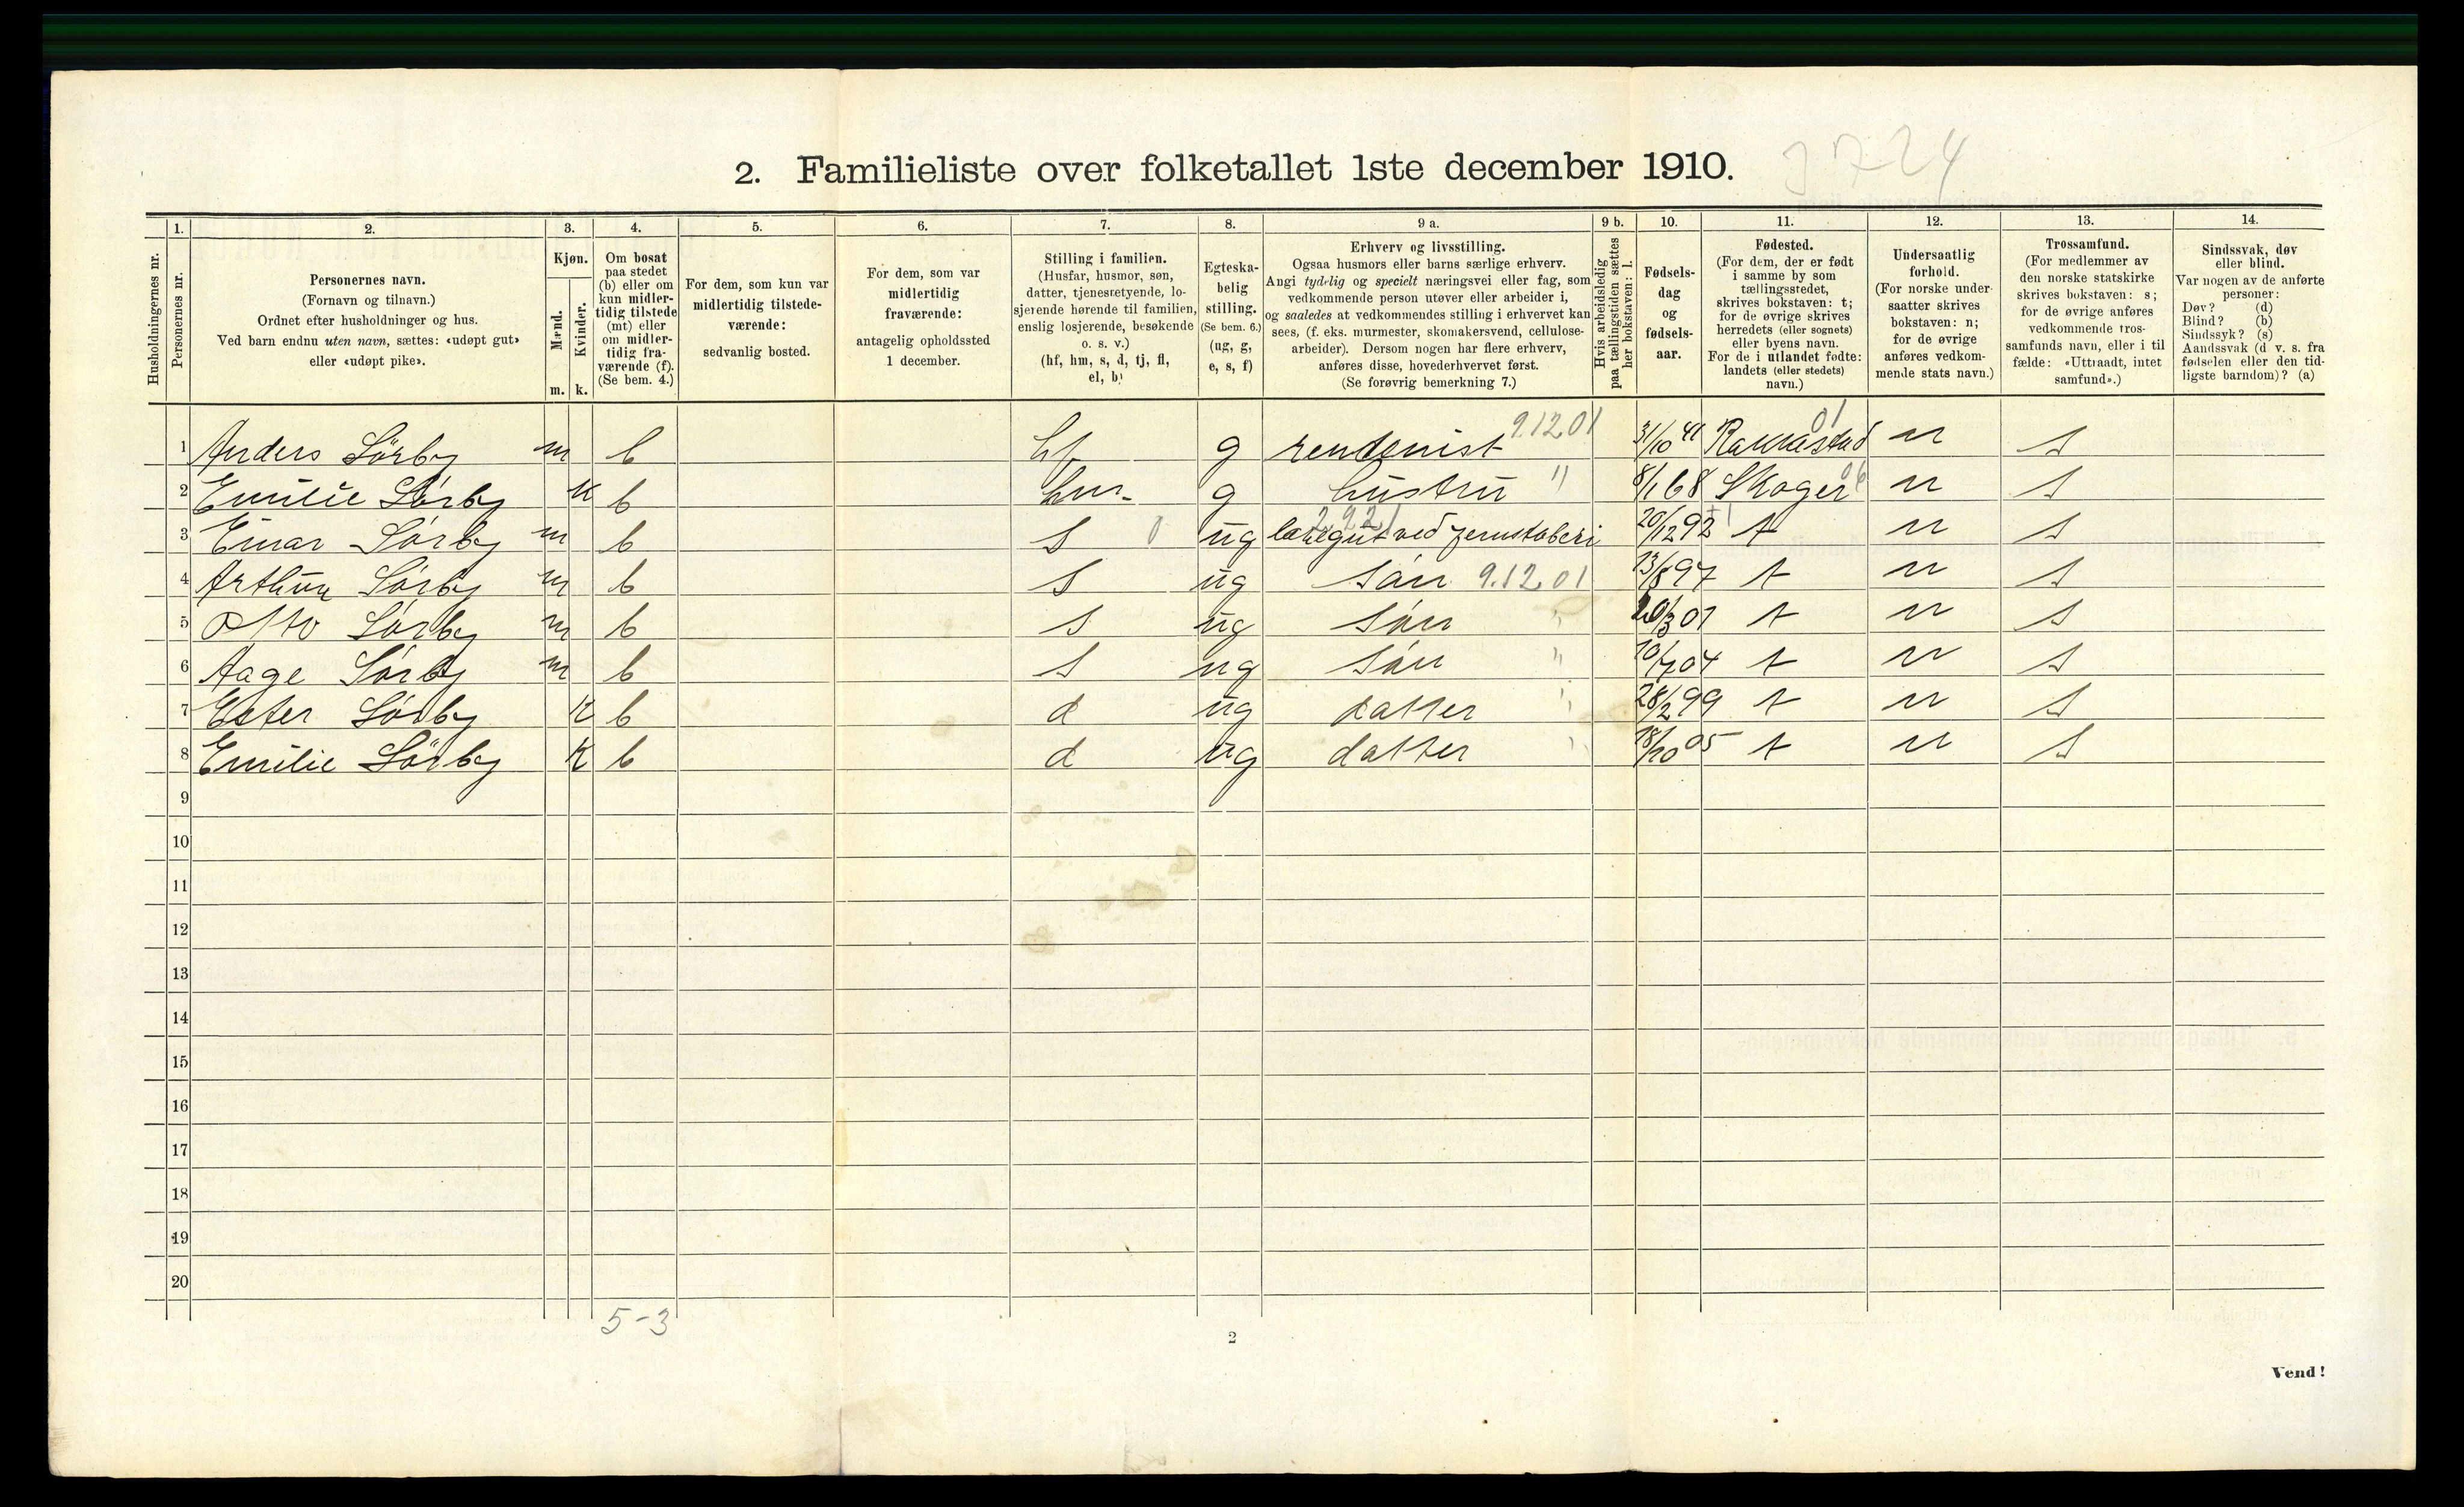 2. Familieliste over folketallet 1ste december 1910.
3724
Husholdningernes nr.
1.
Personernes nr.
2.
Personernes navn.
(Fornavn og tilnavn.)
Ordnet efter husholdninger og hus.
Ved barn endnu uten navn, sættes: «udøpt gut»
eller «udøpt pike».
3.
Kjøn.
Mænd.
Kvinder.
m. k.
4.
Om bosat
paa stedet
(b) eller om
kun midler-
tidig tilstede
(mt) eller
om midler-
tidig fra-
værende (f).
(Se bem. 4.)
5.
For dem, som kun var
midlertidig tilstede-
værende:
sedvanlig bosted.
6.
For dem, som var
midlertidig
fraværende:
antagelig opholdssted
1 december.
7.
Stilling i familien.
(Husfar, husmor, søn,
datter, tjenestetyende, lo-
sjerende hørende til familien,
enslig losjerende, besøkende
o. s. v.)
(hf, hm, s, d, tj, fl,
el, b)
8.
Egteska-
belig
stilling.
(Se bem. 6.)
(ug, g,
e, s, f)
9 a.
Erhverv og livsstilling.
Ogsaa husmors eller barns særlige erhverv.
Angi tydelig og specielt næringsvei eller fag, som
vedkommende person utøver eller arbeider i,
og saaledes at vedkommendes stilling i erhvervet kan
sees, (f. eks. murmester, skomakersvend, cellulose-
arbeider). Dersom nogen har flere erhverv,
anføres disse, hovederhvervet først.
(Se forøvrig bemerkning 7.)
9 b.
Hvis arbeidsledig
paa tællingstiden sættes
her bokstaven: l.
10.
Fødsels-
dag
og
fødsels-
aar.
11.
Fødested.
(For dem, der er født
i samme by som
tællingsstedet,
skrives bokstaven: t;
for de øvrige skrives
herredets (eller sognets)
eller byens navn.
For de i utlandet fødte:
landets (eller stedets)
navn.)
12.
Undersaatlig
forhold.
(For norske under-
saatter skrives
bokstaven: n;
for de øvrige
anføres vedkom-
mende stats navn.)
13.
Trossamfund.
(For medlemmer av
den norske statskirke
skrives bokstaven: s;
for de øvrige anføres
vedkommende tros-
samfunds navn, eller i til-
fælde: «Uttraadt, intet
samfund».)
14.
Sindssvak, døv
eller blind.
Var nogen av de anførte
personer:
Døv? (d)
Blind? (b)
Sindssyk? (s)
Aandssvak (d. v. s. fra
fødselen eller den tid-
ligste barndom)? (a)
1 Anders Sörby m b hf g rentenist 9.12.01 31/10 41 Rakkestad 01 n s
2 Emilie Sörby K b hm g hustru " 8/1 68 Skoger 06 n s
3 Einar Sörby m b s 0 ug læregut ved jernstøberi 20/12 92 t n s
4 Arthur Sörby m b s ug sön 9.12.01 13/8 97 t n s
5 Otto Sörby m b s ug sön " 20/3 01 t n s
6 Aage Sörby m b s ug sön " 10/7 04 t n s
7 Ester Sörby K b d ug datter " 28/2 99 t n s
8 Emilie Sörby K b d ug datter " 18/10 05 t n s
9
10
11
12
13
14
15
16
17
18
19
20
5-3
2
Vend!